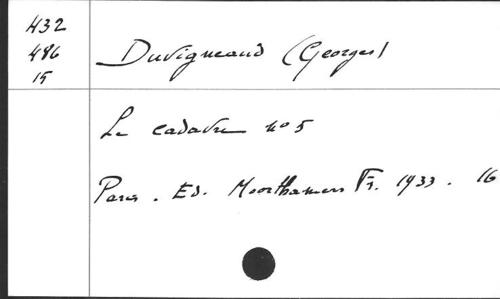 432
486
15
Duvigneaud (Georges)
Le cadavre no 5
Paris. Ed. Moorthamers Fr. 1933. 16